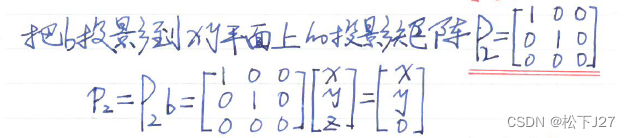 把b投影到xy平面上的投影矩阵P₂=[1 0 0; 0 1 0; 0 0 0]
p₂=P₂b=[1 0 0; 0 1 0; 0 0 0][x; y; z]=[x; y; 0]
CSDN @松下J27